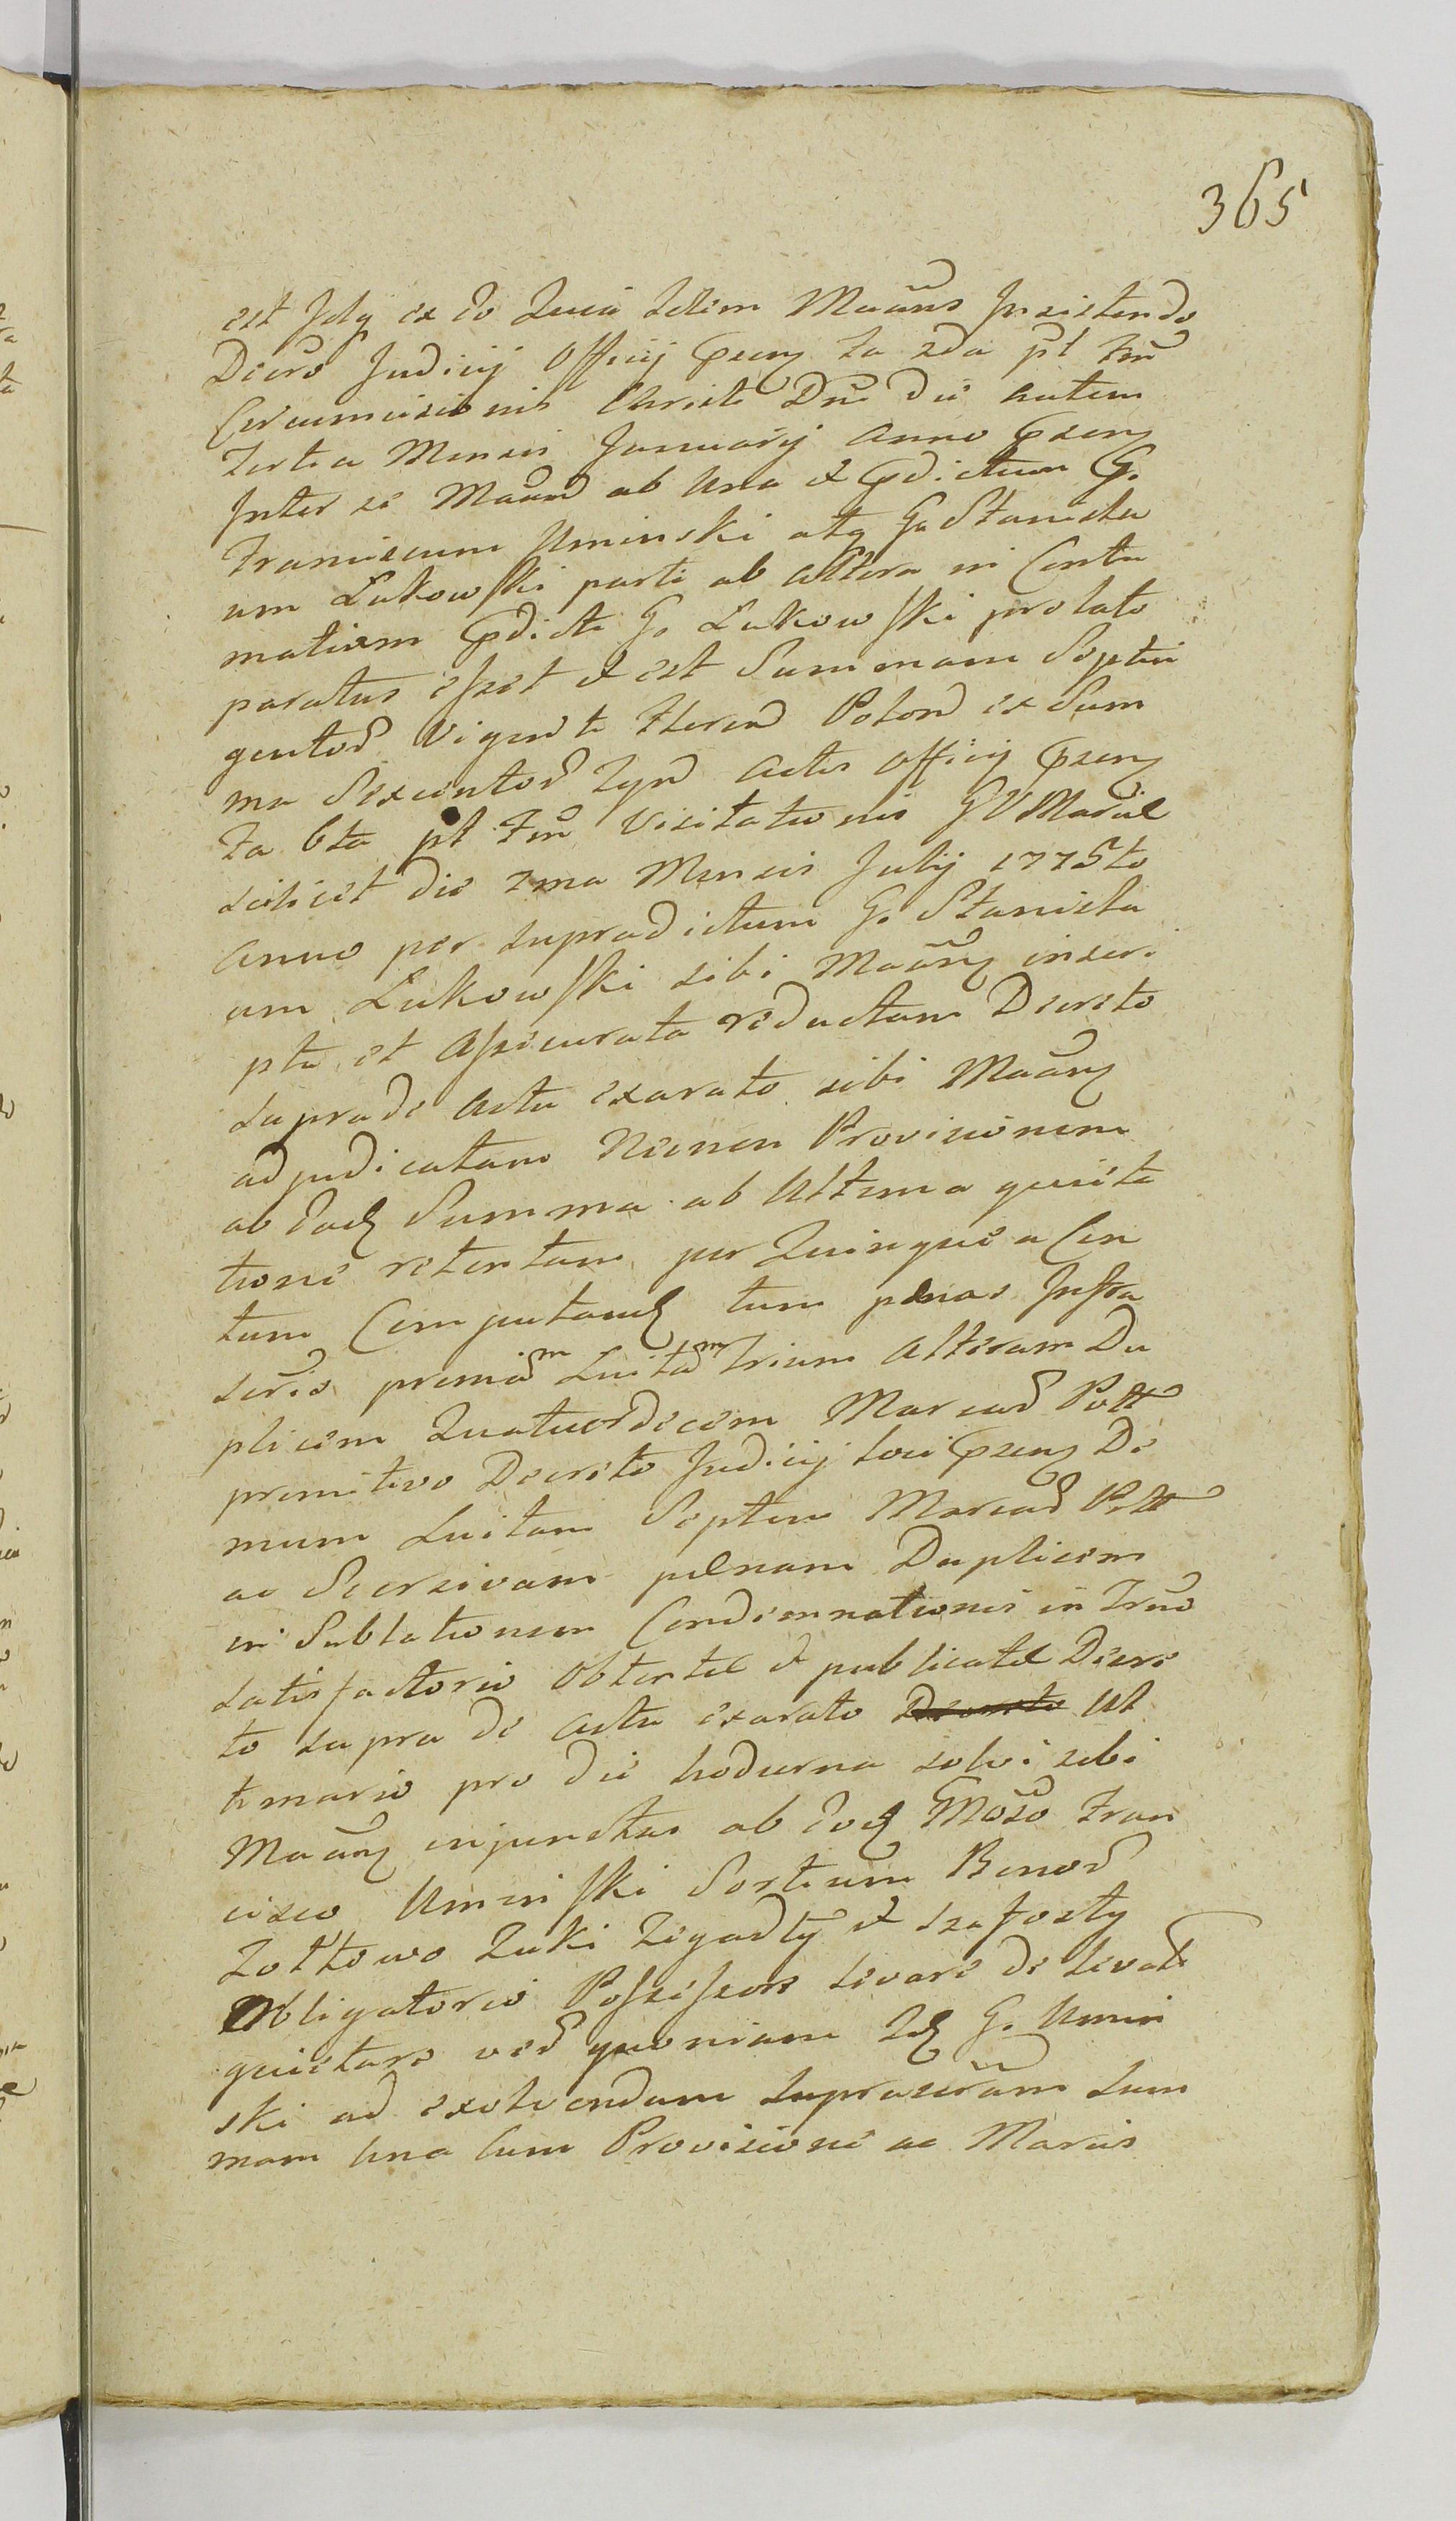 365
est Idq ex Eo Quia Idem Maãns Insistendo
Decrõ Judicij Officij Pzeng Fa 2da pt Fm̃
Circumcisionis Christi Dn̄i die autem
Tertia Mensis Januarij Anno Pzeng
Inter se Maãm ab Una et Pdictum G.
Franciscum Uminski atq G. Stanisla
um Lukowski parti ab Altera in Contu
matiam Pdicti G. Lukowski prolato
paratus esset et est Summam Septin
gentor Viginti Floren Polon ex Sum
ma Sexcentor Tynf Actis Officij Pzeng
Fa 6ta pt Fm̃ Visitationis G V Mariæ
scilicet die 7ma Mensis Julij 1775to
Anno per supradictum G. Stanisla
um Lukowski sibi Maãng inscri
pta et Assecurata reductam Decreto
supra de Actu exarato sibi Maãng
adjudicatam Necnon Provisionem
ab Eadq Summa ab Ultima quieta
tione retentam per Quinque a Cen
tum Computandq tum pænas Infra
scrõs primam Luitam Trium Alteram Du
plicem Quatuordecim Marcar Poll
primitivo Decreto Judicij loci Pzeng De
mum Luitam Septem Marcar Poll
ac Seorsivam pænam Duplicem
in Sublationem Condemnationis in Trno
satisfactorio Obtentæ et publicatæ Decre
to supra de Actu exarato Decreto Ul
timario pro die hodierna solvi sibi
Maãng injunctas ab Eodq Gñoso Fran
cisco Uminski Sortium Bonor
Zołtowo Zuki Zigadły et Szafosty
Obligatorio Possessore levare de levatis
quietare ver quoniam Idq G. Umin
ski ad exolvendam suprascr̃am Sum
mam Una Cum Provisione ac Marcis